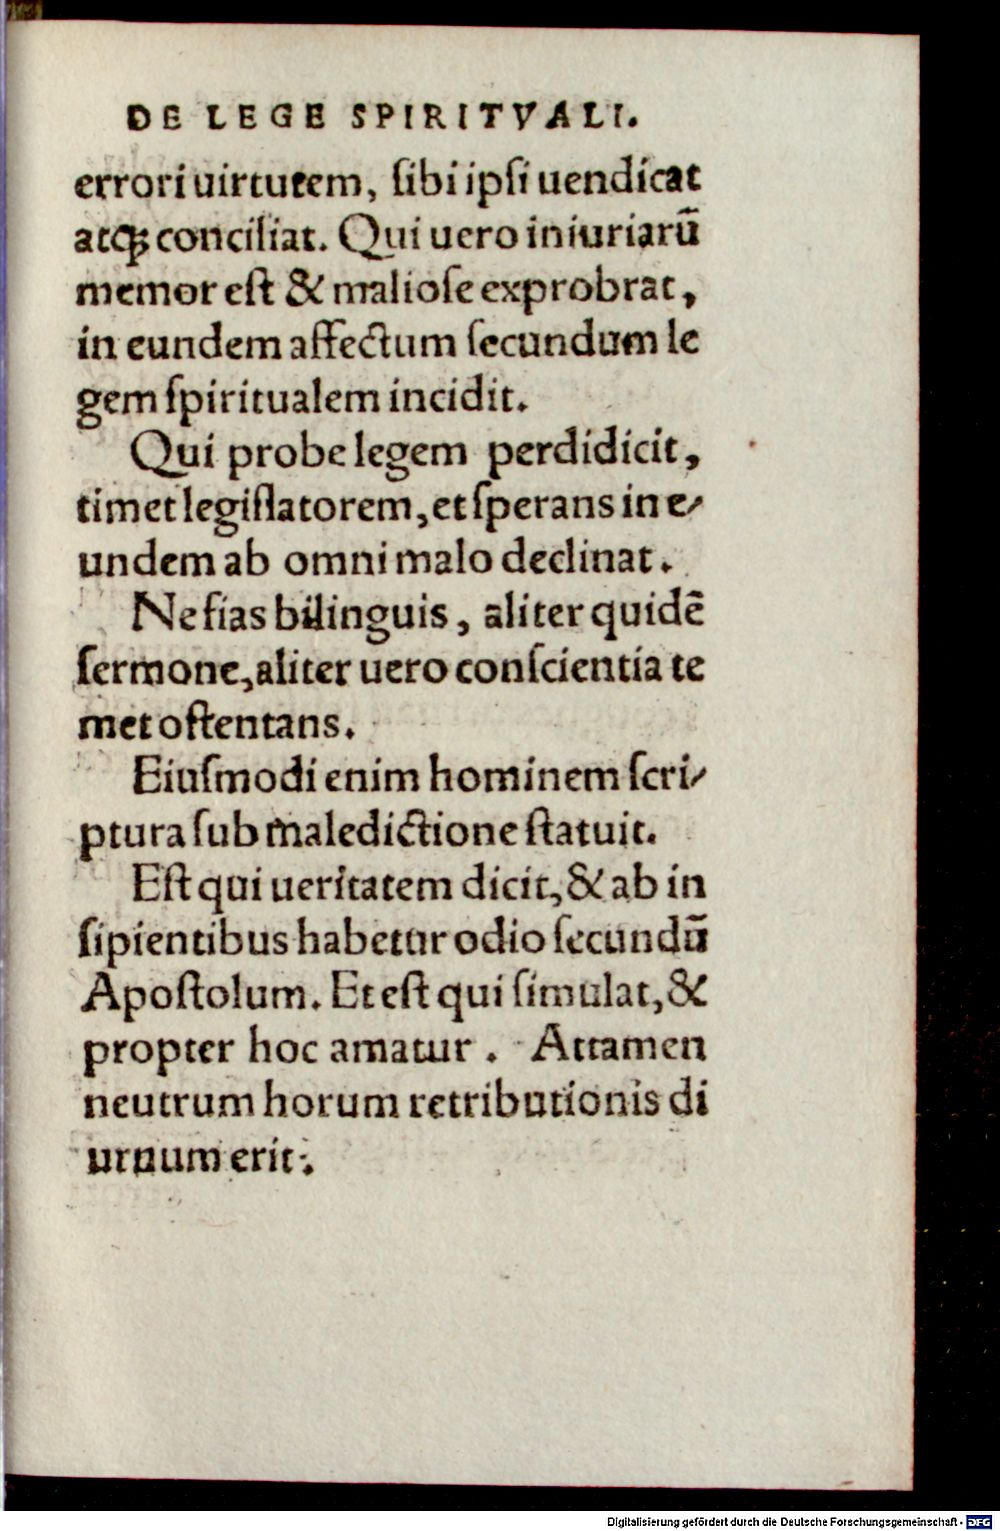 DE LEGE SPIRITVALI.
errori uirtutem, ſibi ipſi uendicat
atq́ꝫ conciliat. Qui uero iniuriarū
memor eſt & malioſe exprobrat,
in eundem affectum ſecundum le
gem ſpiritualem incidit.
Qui probe legem perdidicit,
timet legiſlatorem, et ſperans in e⸗
undem ab omni malo declinat.
Ne fias bilinguis, aliter quidē
ſermone, aliter uero conſcientia te
met oſtentans.
Eiuſmodi enim hominem ſcri⸗
ptura ſub maledictione ſtatuit.
Eſt qui ueritatem dicit, & ab in
ſipientibus habetur odio ſecundū
Apoſtolum. Et eſt qui ſimulat, &
propter hoc amatur. Attamen
neutrum horum retributionis di
urnum erit.
Digitalisierung gefördert durch die Deutsche Forschungsgemeinschaft - DFG